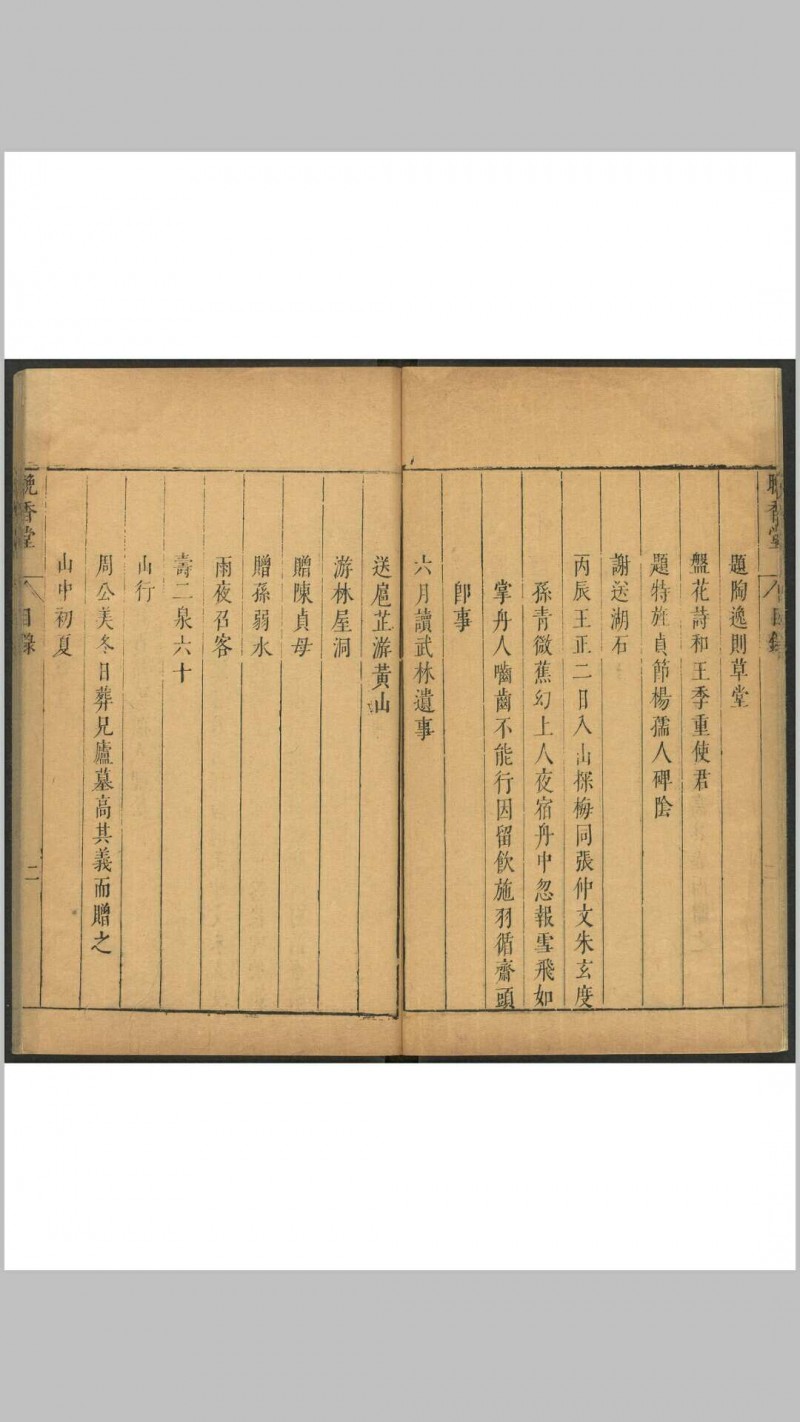 晚香堂 目錄
題陶逸則草堂
盤花詩和王季重使君
題特旌貞節楊孺人碑陰
謝送湖石
丙辰王正二日入山探梅同張仲文朱玄度
孫青徵蕉幻上人夜宿舟中忽報雪飛如
掌丹人嚙齒不能行因留飲施羽循齋頭
卽事
六月讀武林遺事
送扈芷游黃山
游林屋洞
贈陳貞母
贈孫弱水
雨夜召客
壽二泉六十
山行
周公美冬日葬兄廬墓高其義而贈之
山中初夏
晚香堂 目錄 二